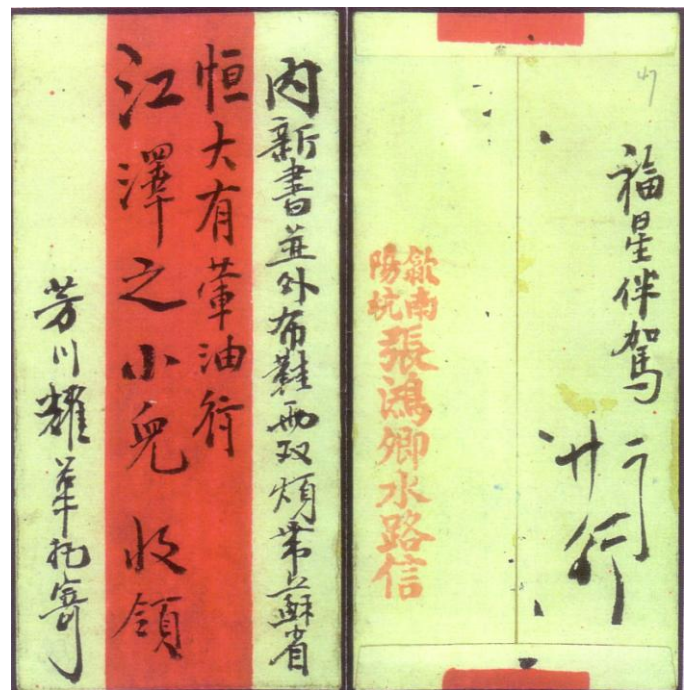 内新書並外布鞋両双煩带蘇省
恒大有葷油行
江澤之小兒收領
芳川耀華托寄
47
福星伴駕
歙南
陽坑
張鴻卿水路信